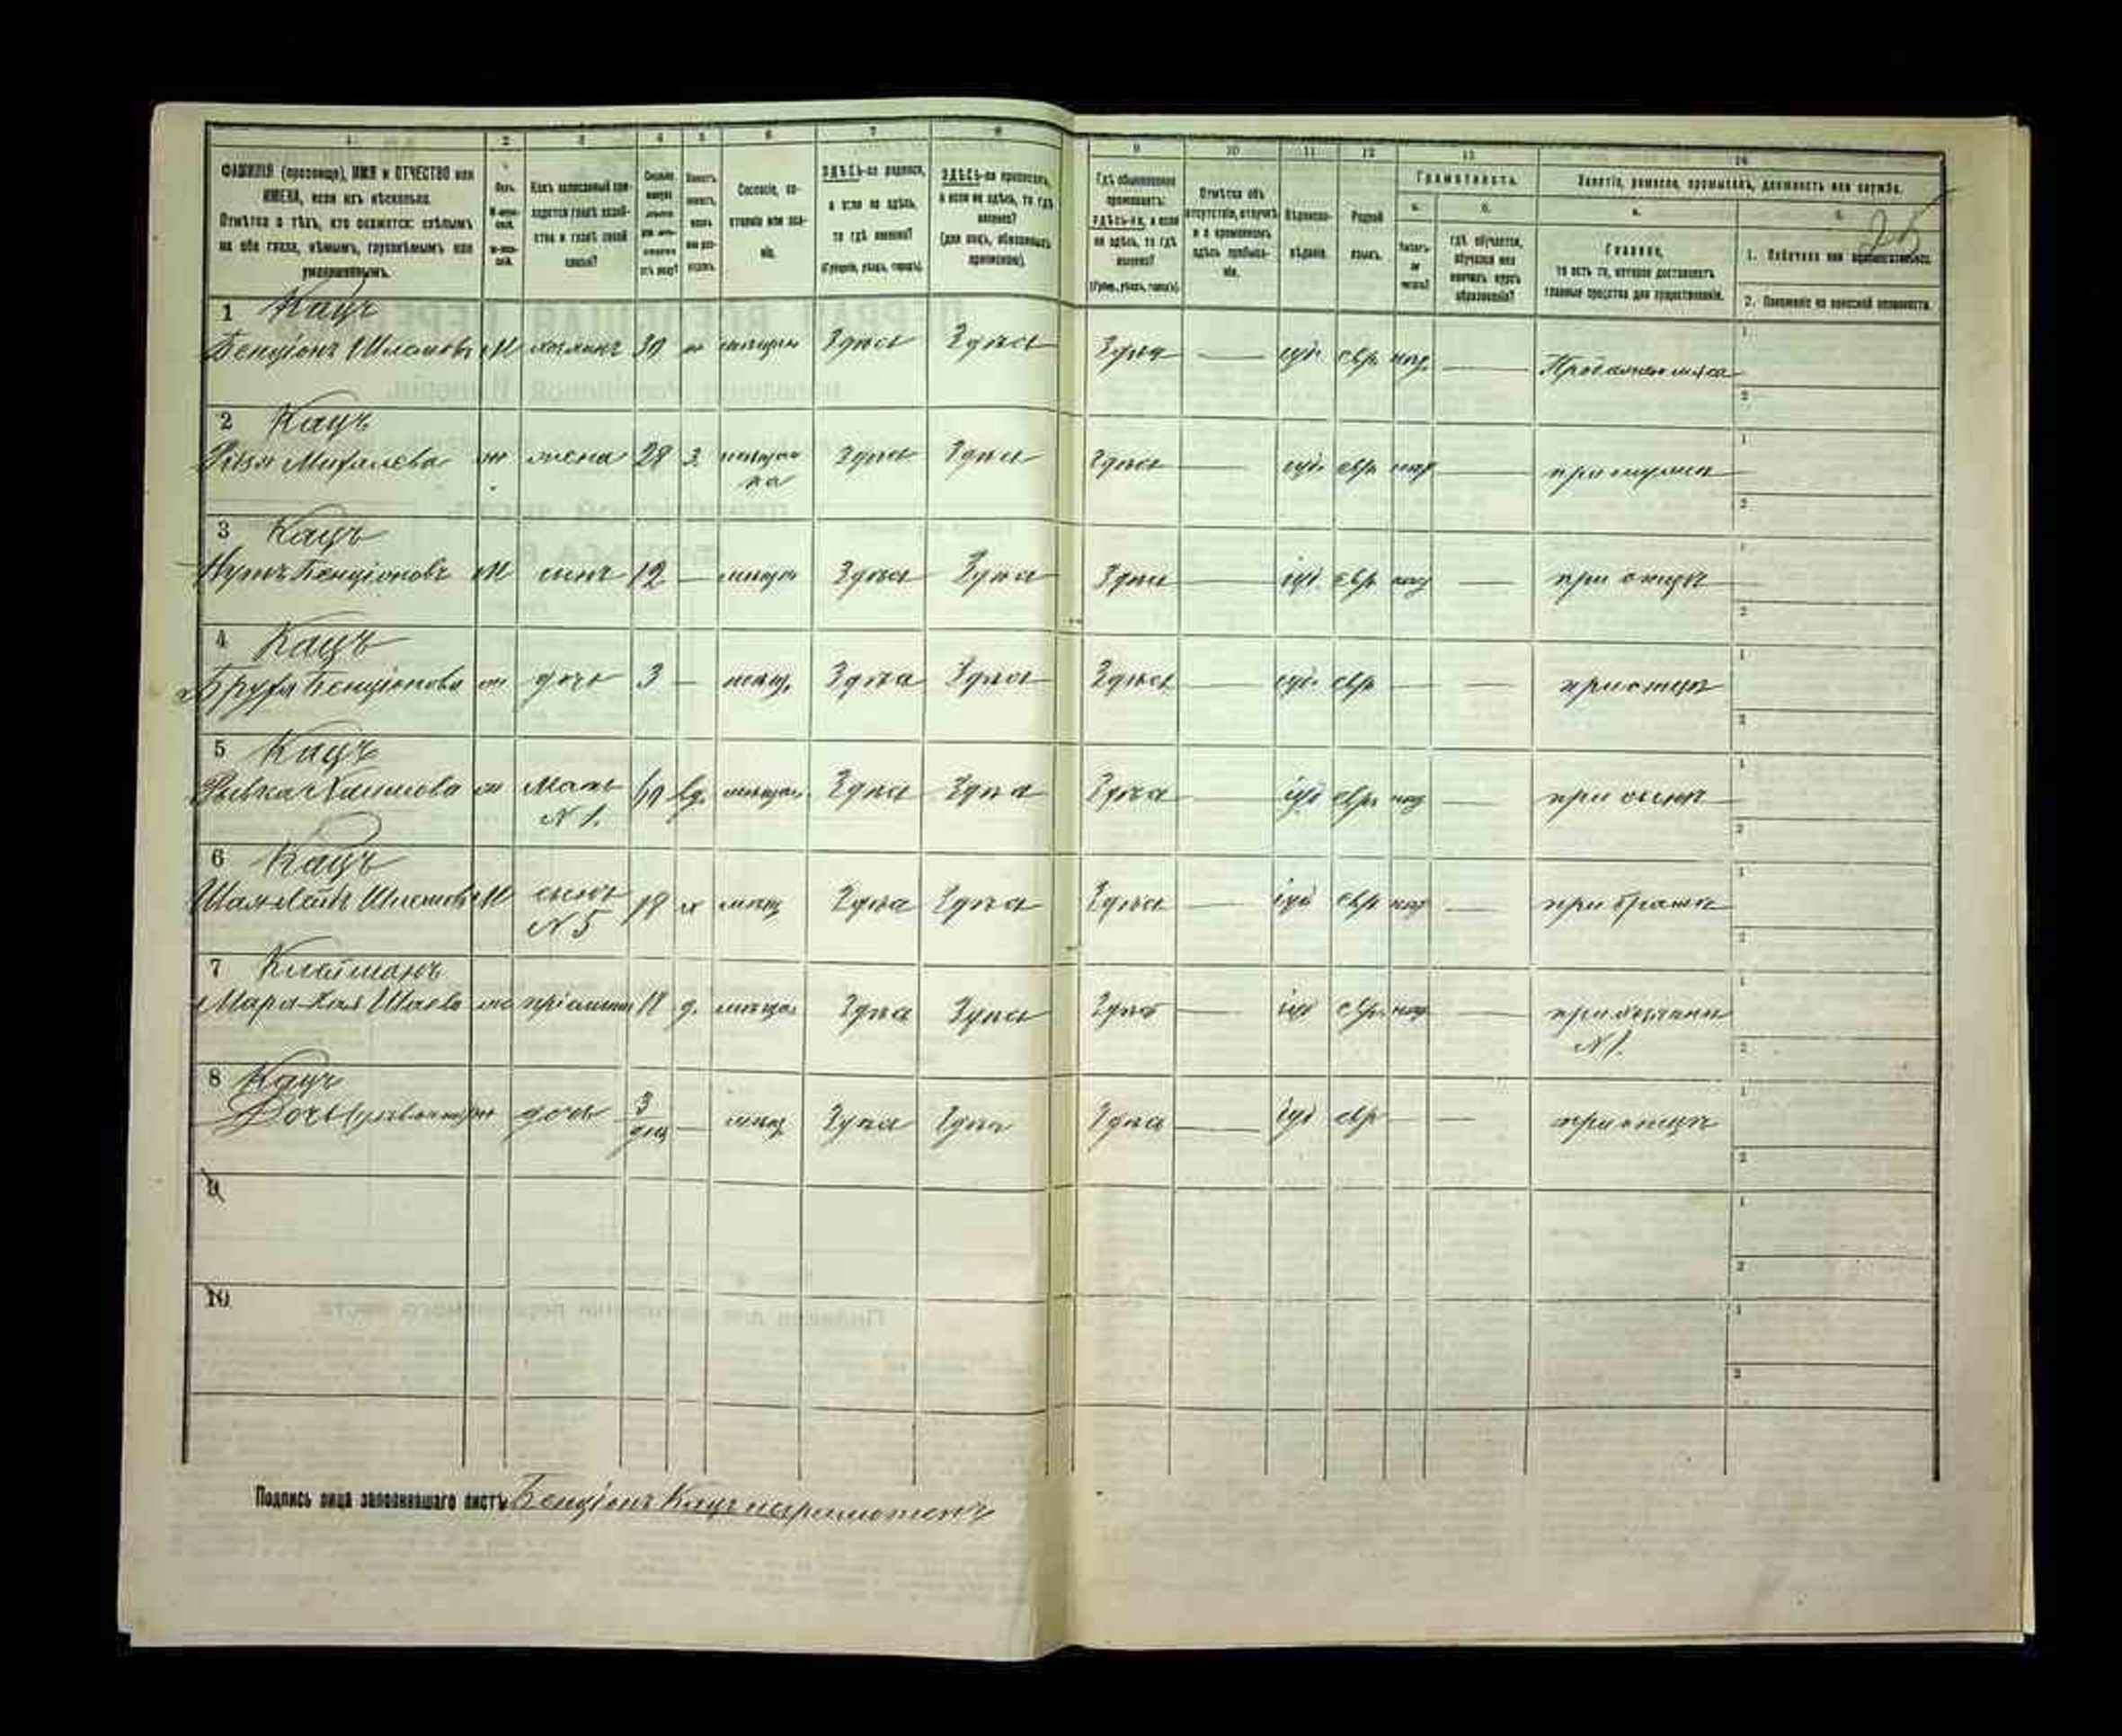 1 2 3 4 5 6 7 8 9 10 11 12 13 14
ФАМИЛІЯ (прозвище), ИМЯ и ОТЧЕСТВО или
ИМЕНА, если ихъ нѣсколько.
Отмѣтка о тѣхъ, кто окажется: слѣпымъ
на оба глаза, нѣмымъ, глухонѣмымъ или
умалишеннымъ.
Полъ.
Какъ записанный при-
ходится главѣ хозяй-
ства и главѣ своей
семьи?
Сословіе, со-
стояніе или зва-
ніе.
ЗДѢСЬ-ли родился,
а если не здѣсь,
то гдѣ именно?
(Губернія, уѣздъ, городъ).
ЗДѢСЬ-ли приписанъ,
а если не здѣсь, то гдѣ
именно?
(для лицъ, обязанныхъ
припискою).
Гдѣ обыкновенно
проживаетъ:
здѣсь-ли, а если
не здѣсь, то гдѣ
именно?
(Губер., уѣздъ, городъ).
Отмѣтка объ
отсутствіи, отлучкѣ
и о временномъ
здѣсь пребыва-
ніи.
Вѣроиспо-
вѣданіе.
Родной
языкъ.
Грамотность.
а.
Умѣетъ-
ли
читать?
б.
гдѣ обучается,
обучался или
кончилъ курсъ
образованія?
Занятіе, ремесло, промыселъ, должность или служба.
а.
Главное,
то есть то, которое доставляетъ
главныя средства для существованія.
б.
1. Побочное или вспомогательное.
2. Положеніе по воинской повинности.
25
1 Кацъ
Бенціонъ Шломовъ М хозяинъ 30 Здѣсь Здѣсь Здѣсь — іуд. евр. нѣтъ — 1
2
2 Кацъ
Михалева ж жена 28 з. мѣщан Здѣсь Здѣсь Здѣсь — іуд. евр нѣтъ — при мужѣ 1
ка 2
3 Кацъ
Бенціоновъ М сынъ 12 — мѣщан Здѣсь Здѣсь Здѣсь — іуд. евр нѣтъ — при отцѣ 1
2
4 Кацъ
Бруха Бенціонова ж дочь 3 — мѣщ. Здѣсь Здѣсь Здѣсь — іуд. евр — — при отцѣ 1
2
5 Кацъ
Рывка Хаимова ж мать 60 вд. мѣщан. Здѣсь Здѣсь Здѣсь — іуд евр нѣтъ — при сынѣ 1
N 1. 2
6 Кацъ
Шломовъ М сынъ 18 х мѣщ Здѣсь Здѣсь Здѣсь — іуд евр нѣтъ — при братѣ 1
N 5 2
7 Клейманъ
Мара-Хая ж 11 д. мѣщан Здѣсь Здѣсь Здѣсь — іуд евр. нѣтъ — 1
N 1. 2
8 Кацъ
Дочь дочь 3 — мѣщ Здѣсь Здѣсь Здѣсь — іуд евр — — при отцѣ 1
дня 2
9 1
2
10 1
2
Подпись лица заполнившаго листъ Бенціонъ Кацъ неграмотенъ